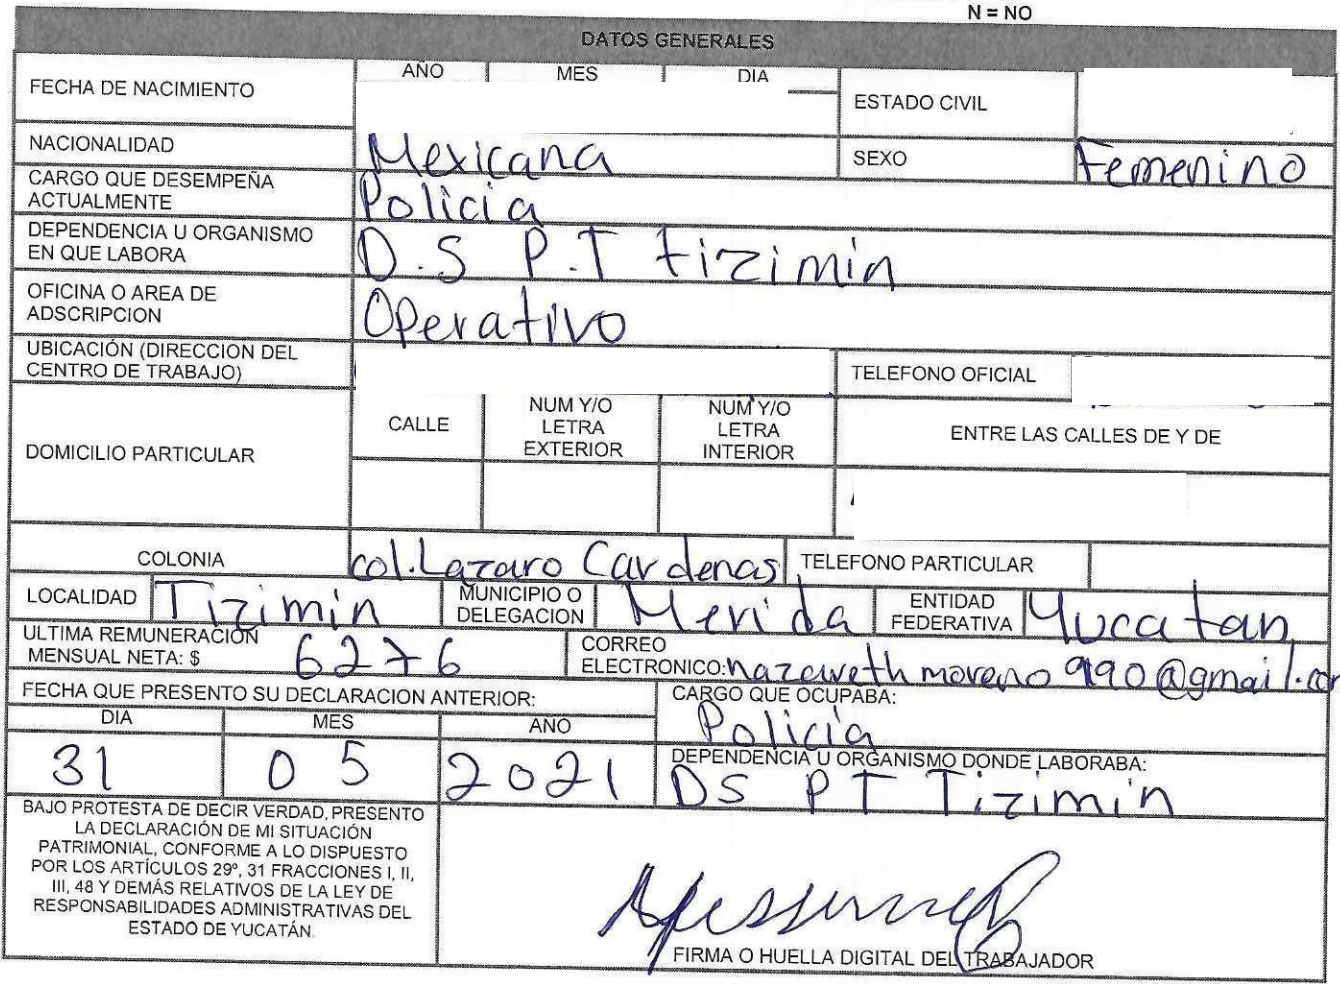 N = NO
DATOS GENERALES
FECHA DE NACIMIENTO
AÑO MES DIA
ESTADO CIVIL
NACIONALIDAD Mexicana SEXO Femenino
CARGO QUE DESEMPEÑA
ACTUALMENTE
Policia
DEPENDENCIA U ORGANISMO
EN QUE LABORA
D.S P.T tizimin
OFICINA O AREA DE
ADSCRIPCION
Operativo
UBICACIÓN (DIRECCION DEL
CENTRO DE TRABAJO)
TELEFONO OFICIAL
DOMICILIO PARTICULAR
CALLE
NUM Y/O
LETRA
EXTERIOR
NUM Y/O
LETRA
INTERIOR
ENTRE LAS CALLES DE Y DE
COLONIA col. Lazaro Cardenas TELEFONO PARTICULAR
LOCALIDAD Tizimin
MUNICIPIO O
DELEGACION
Merida
ENTIDAD
FEDERATIVA
Yucatan
ULTIMA REMUNERACIÓN
MENSUAL NETA: $ 6276
CORREO
ELECTRONICO: nazareth moreno 990@gmail.com
FECHA QUE PRESENTO SU DECLARACION ANTERIOR:
DIA MES AÑO
31 05 2021
CARGO QUE OCUPABA:
Policía
DEPENDENCIA U ORGANISMO DONDE LABORABA:
DS PT Tizimin
BAJO PROTESTA DE DECIR VERDAD, PRESENTO
LA DECLARACIÓN DE MI SITUACIÓN
PATRIMONIAL, CONFORME A LO DISPUESTO
POR LOS ARTÍCULOS 29º, 31 FRACCIONES I, II,
III, 48 Y DEMÁS RELATIVOS DE LA LEY DE
RESPONSABILIDADES ADMINISTRATIVAS DEL
ESTADO DE YUCATÁN.
FIRMA O HUELLA DIGITAL DEL TRABAJADOR